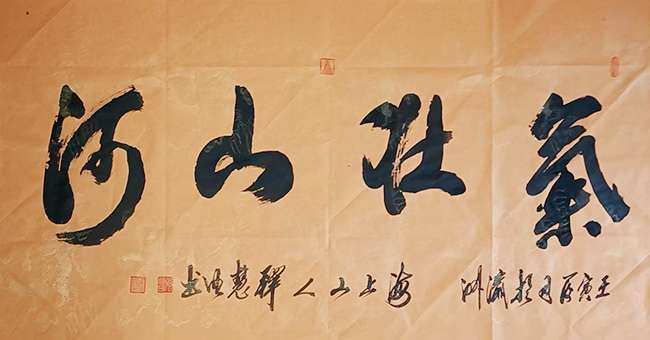 氣壯山河
壬寅月於瀛洲 海上山人釋慧迪书